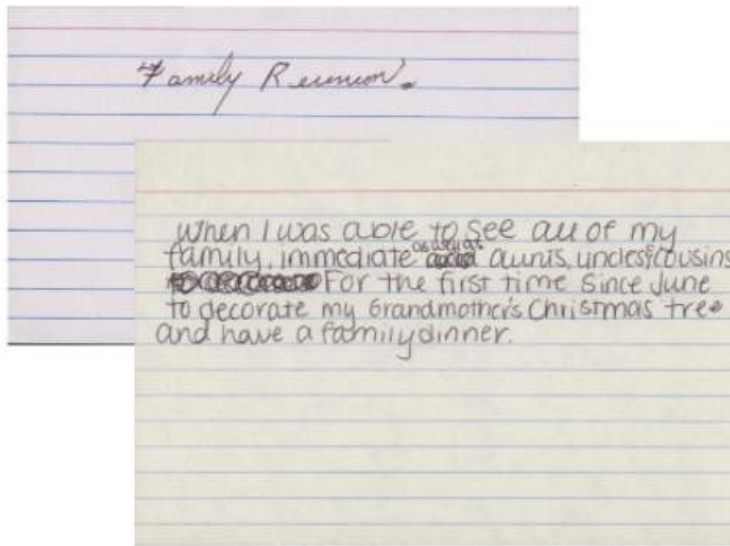 Family Reunion.
When I was able to see all of my
as well as
family, immediate aunts, uncles, cousins
For the first time since June
to decorate my Grandmother's Christmas tree
and have a family dinner.